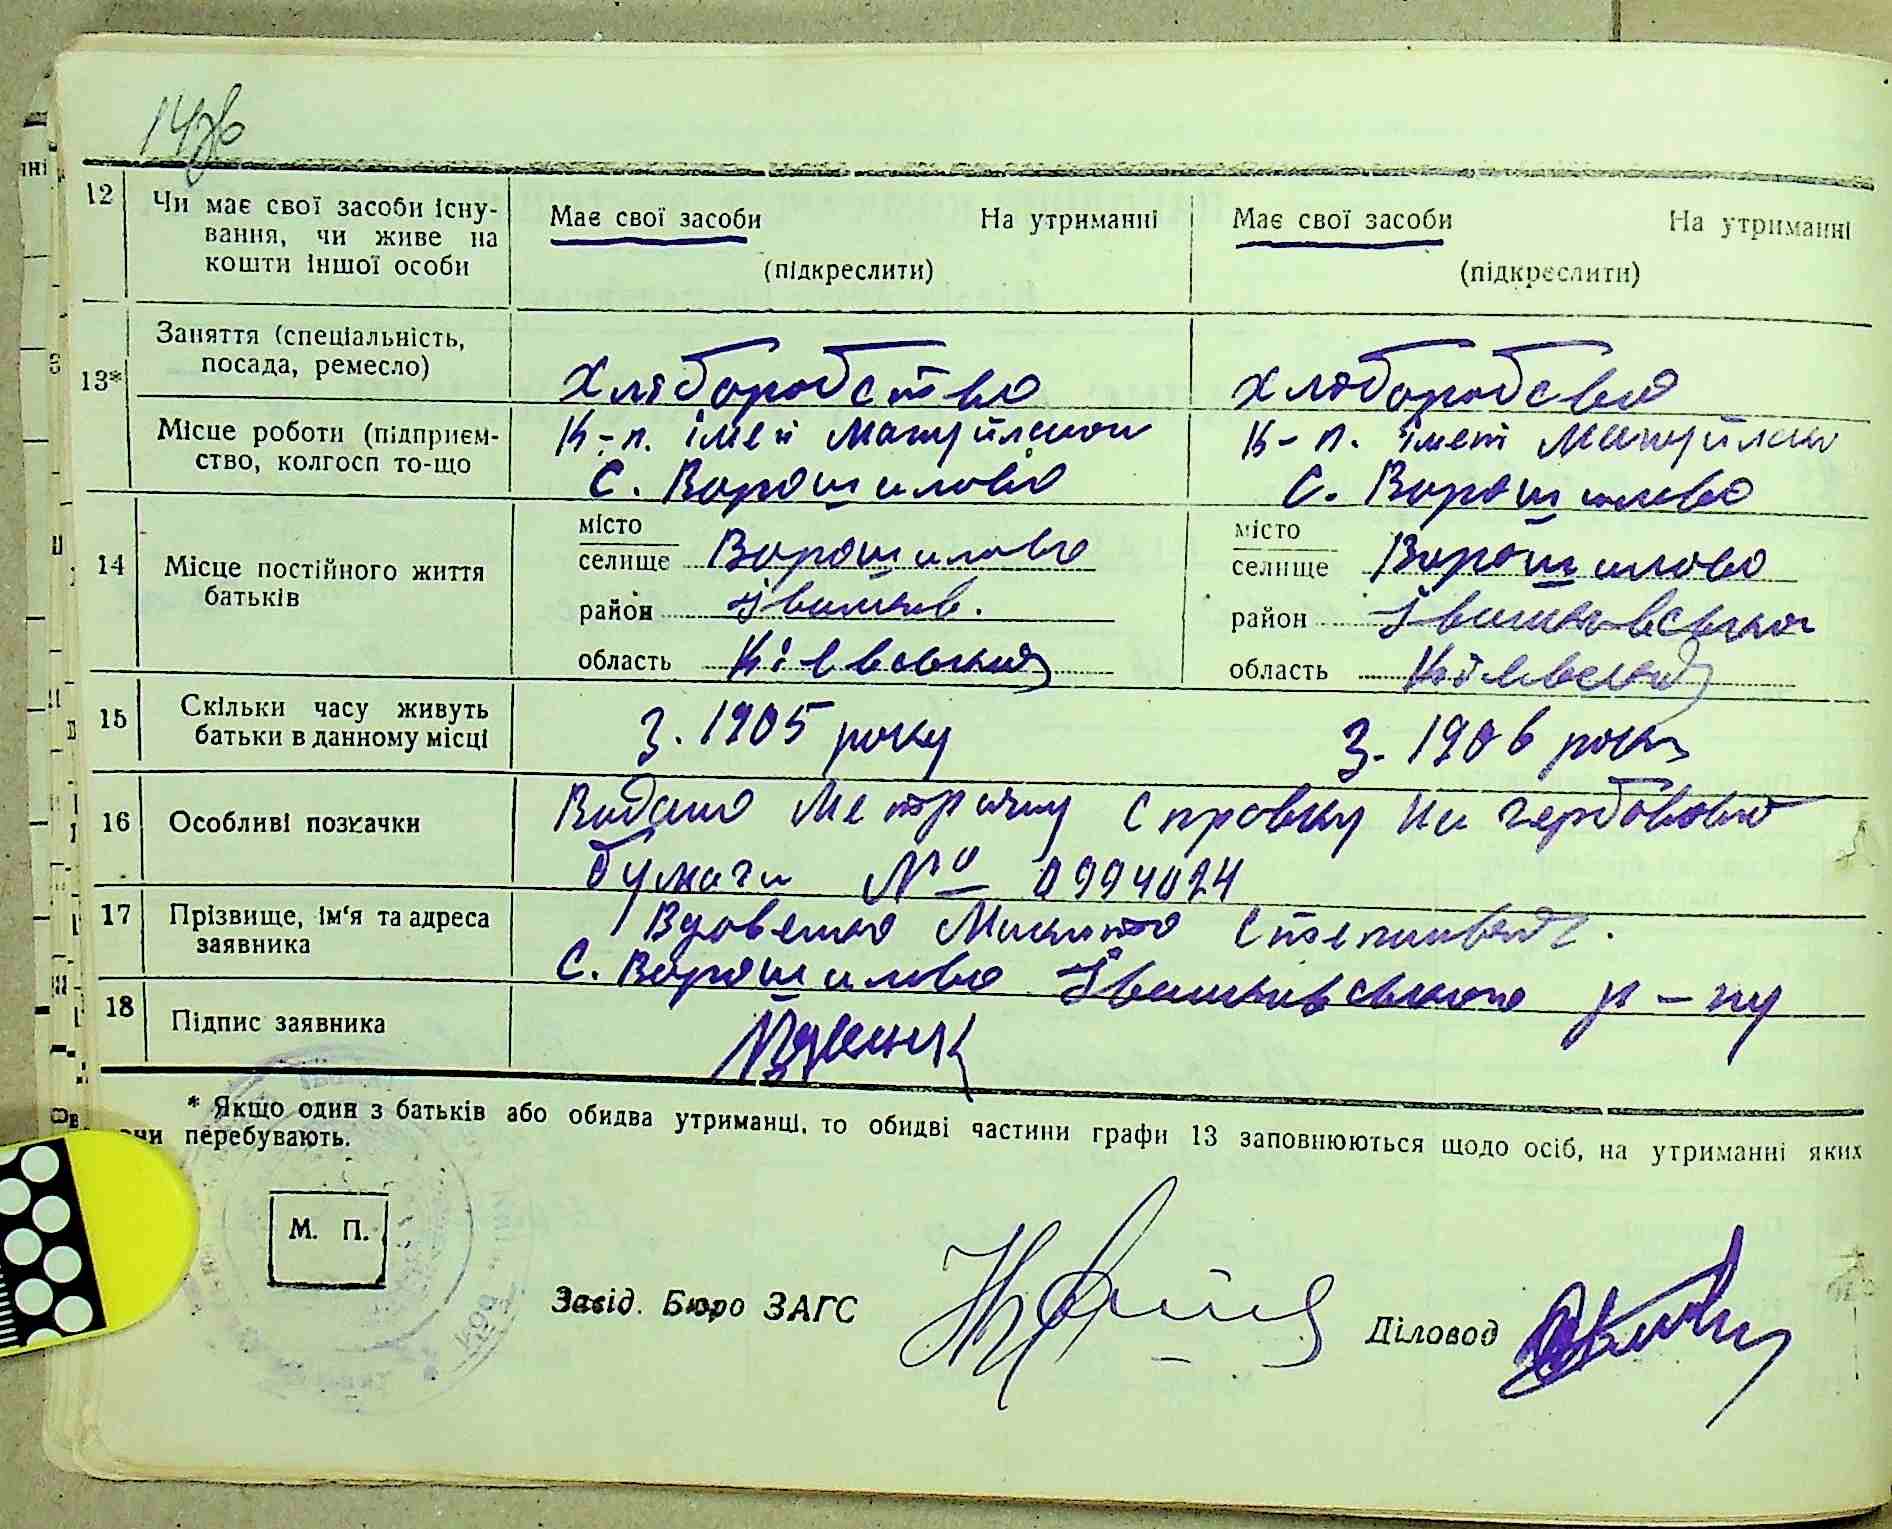 147б
12 Чи має свої засоби існу-
вання, чи живе на
кошти іншої особи
Має свої засоби На утриманні
(підкреслити)
Має свої засоби На утриманні
(підкреслити)
13*
Заняття (спеціальність,
посада, ремесло)
Хліборобство
хлоборобсво
Місце роботи (підприєм-
ство, колгосп то-що
К-п. імей Мануйлсько
с. Ворошилово
К-п. імені Мануйлсько
с. Ворошилово
14 Місце постійного життя
батьків
місто
селище Ворошилово
район Іванків.
область Київська
місто
селище Ворошилово
район Іванковсько
область Київська
15 Скільки часу живуть
батьки в данному місці
З. 1905 року
З. 1906 року
16 Особливі позначки
Видано Метричну Справку на гербовово
бумаги № 0994024
17 Прізвище, ім‘я та адреса
заявника
Вдовенко Микито Степанович.
с. Ворошилово Іванківського р-ну
18 Підпис заявника
* Якщо один з батьків або обидва утриманці, то обидві частини графи 13 заповнюються щодо осіб, на утриманні яких
они перебувають.
М. П.
Завід. Бюро ЗАГС
Діловод